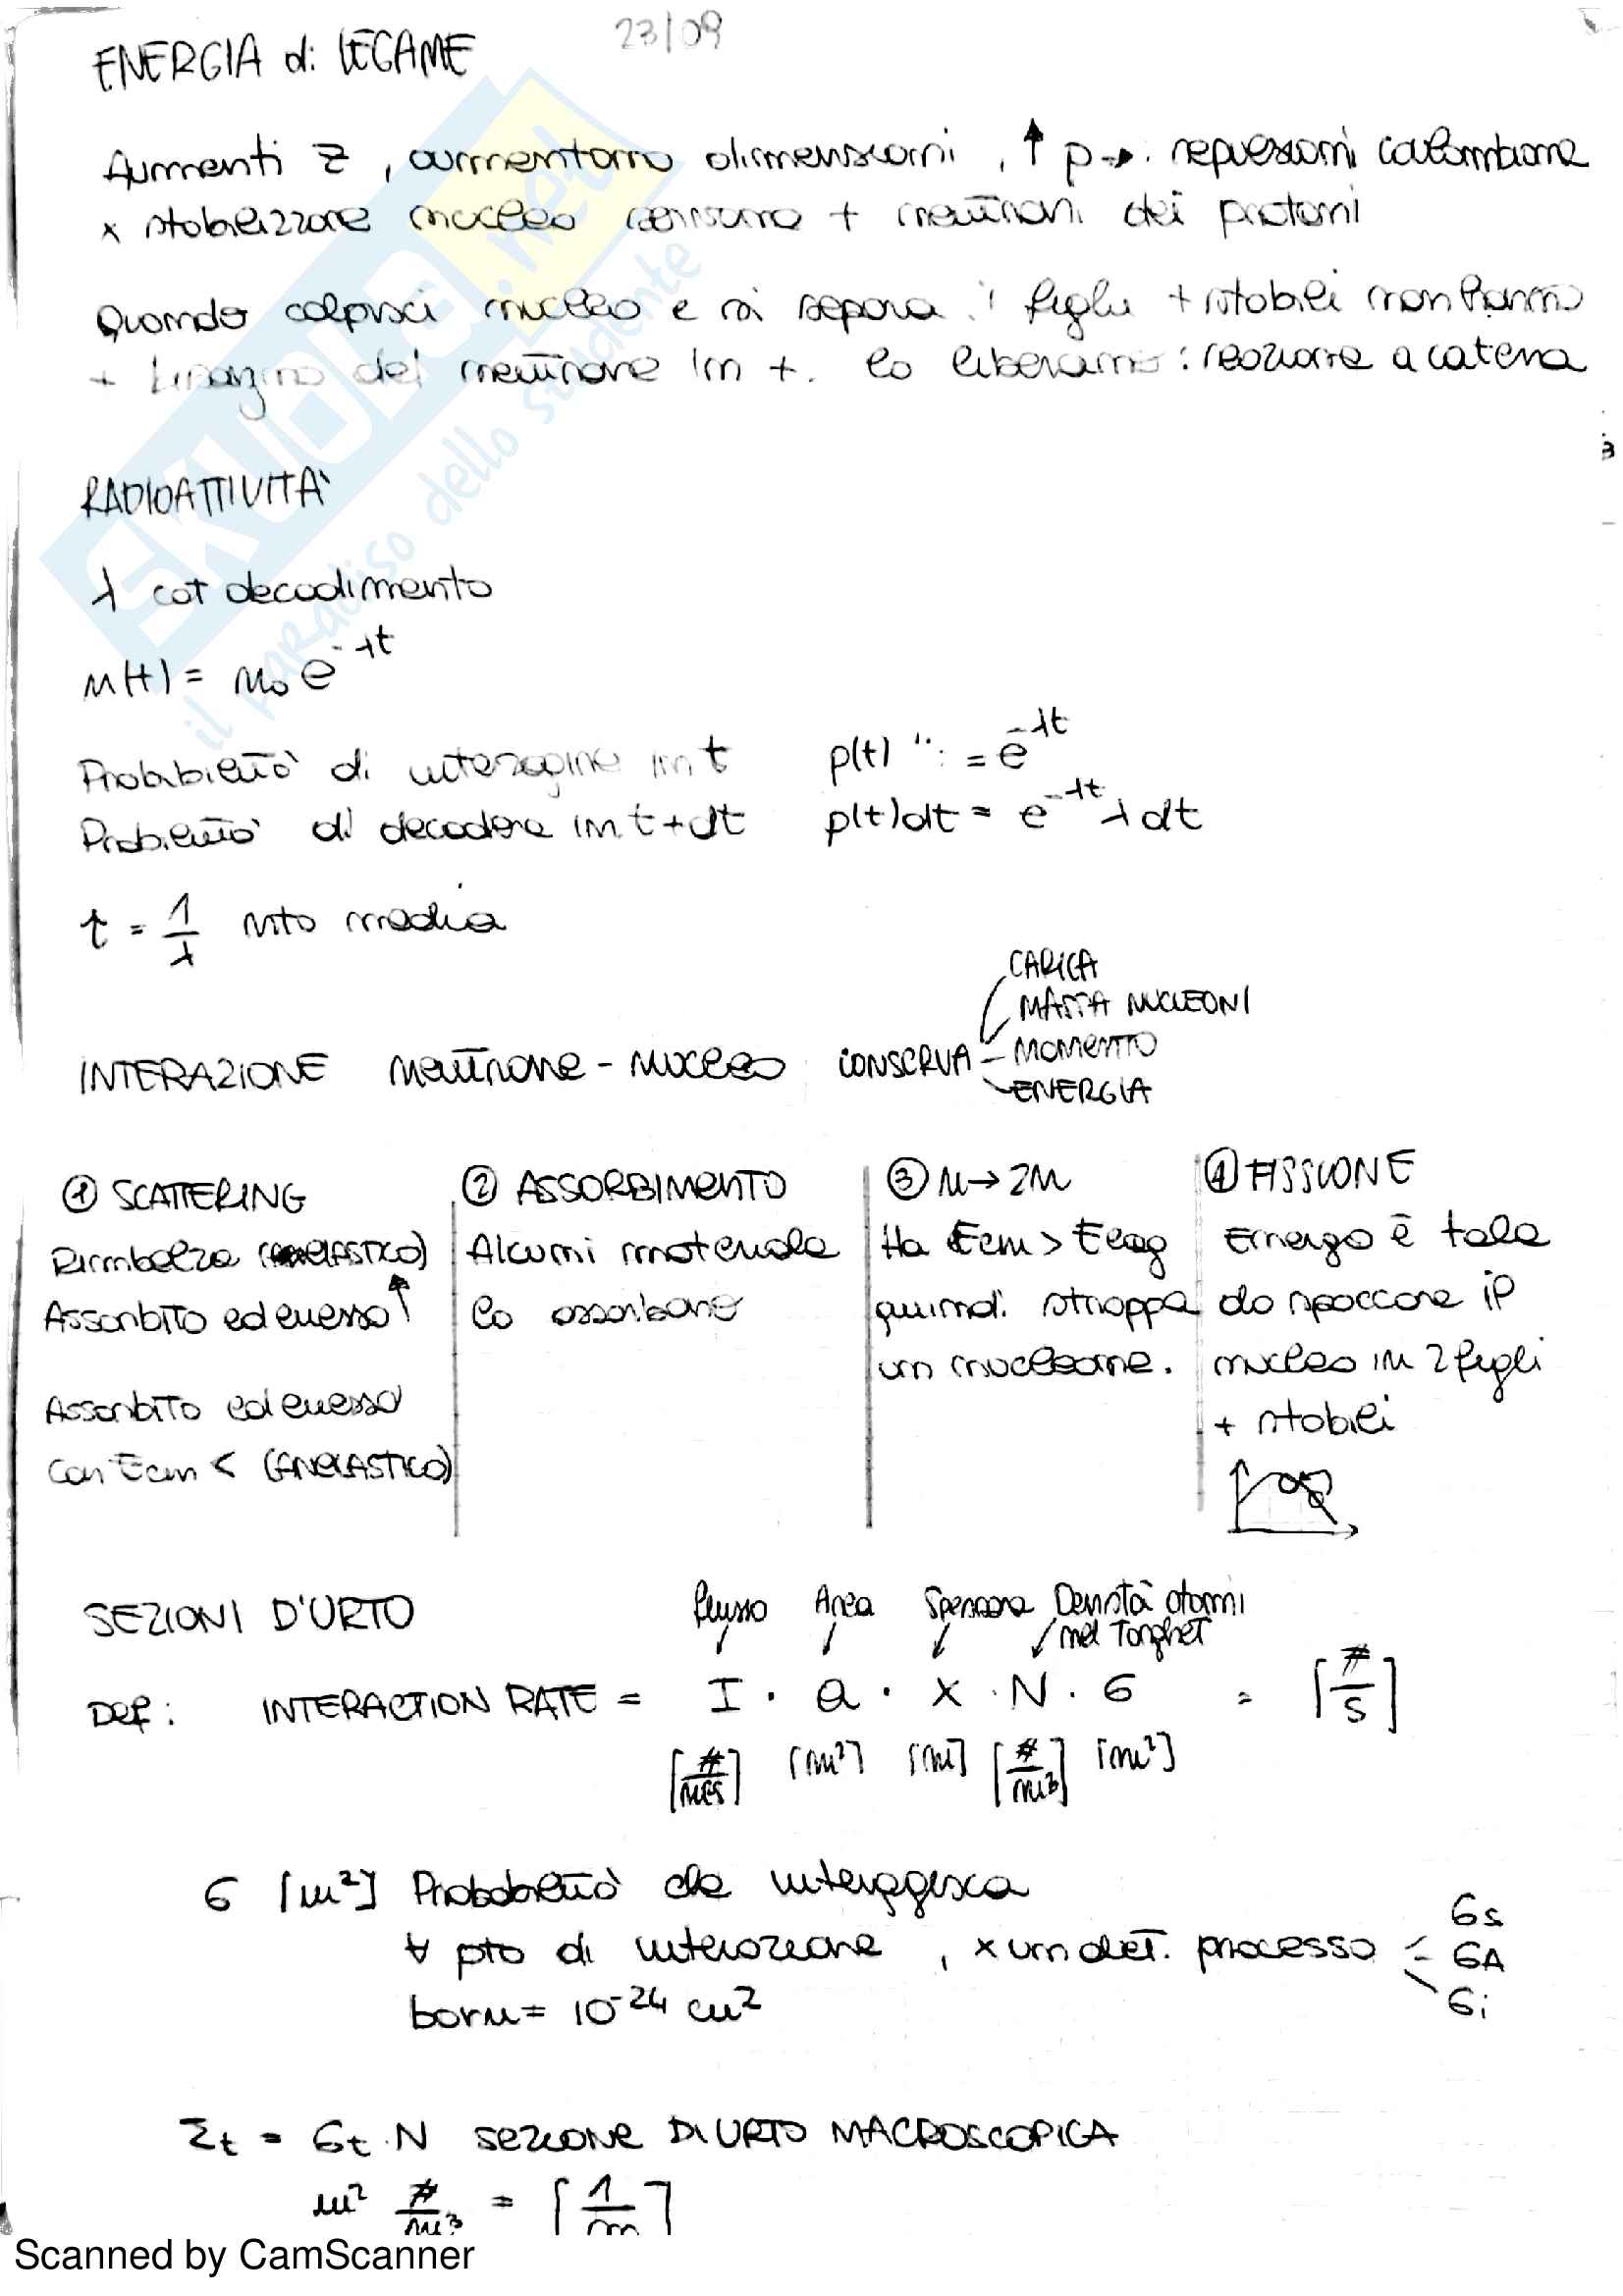 23/09
ENERGIA di LEGAME
Aumenti Z, aumentano dimensioni, ↑ p → repulsioni coulombiane
x stabilizzare nucleo servono + neutroni dei protoni
Quando colpisci nucleo e si separa i figli + stabili non hanno
+ bisogno del neutrone in + . lo liberano : reazione a catena
RADIOATTIVITA'
λ cot decadimento
n(t) = n₀ e^-λt
Probabilità di in t p(t) " : = e^-λt
Probilità di decadere in t+dt p(t)dt = e^-λt λ dt
t = 1/λ vita media
INTERAZIONE neutrone - nucleo CONSERVA
CARICA
MASSA NUCLEONI
MOMENTO
ENERGIA
① SCATTERING
Rimbalza (ELASTICO)
Assorbito ed emesso ↑
Assorbito ed emesso
con Ecin < (ANELASTICO)
② ASSORBIMENTO
Alcuni materiale
lo assorbono
③ n → 2n
Ha Ecin > Eleg
quindi strappa
un nucleone.
④ FISSIONE
Energia è tale
da spaccare il
nucleo in 2 figli
+ stabili
SEZIONI D'URTO
flusso Area Spessore Densità atomi
nel Target
Def: INTERACTION RATE = I · a · X · N · σ = [#/s]
[#/m²s] [m²] [m] [#/m³] [m²]
σ [m²] Probabilità che interagisca
∀ pto di interazione, x un det. processo
σs
σA
σi
barn = 10^-24 cm²
Σt = σt · N SEZIONE DI URTO MACROSCOPICA
m² #/m³ = [1/m]
Scanned by CamScanner
SKUOLA.net
il paradiso dello studente